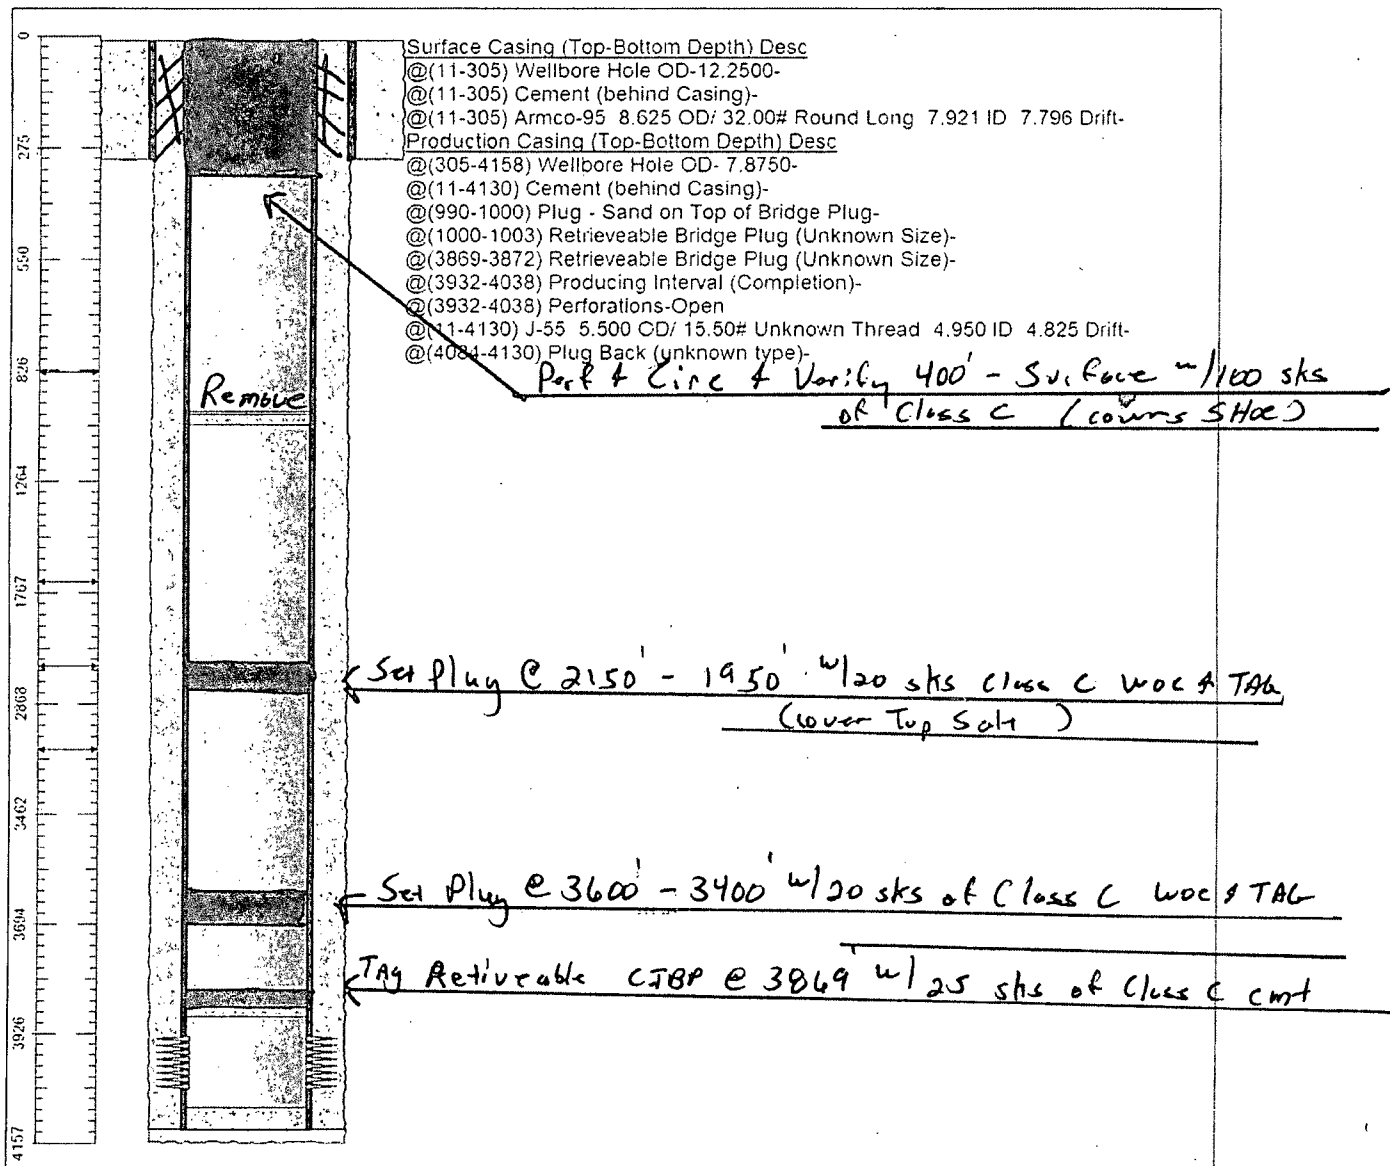 0
275
550
826
1264
1767
2868
3462
3694
3926
4157
Surface Casing (Top-Bottom Depth) Desc
@(11-305) Wellbore Hole OD-12.2500-
@(11-305) Cement (behind Casing)-
@(11-305) Armco-95 8.625 OD/ 32.00# Round Long 7.921 ID 7.796 Drift-
Production Casing (Top-Bottom Depth) Desc
@(305-4158) Wellbore Hole OD- 7.8750-
@(11-4130) Cement (behind Casing)-
@(990-1000) Plug - Sand on Top of Bridge Plug-
@(1000-1003) Retrieveable Bridge Plug (Unknown Size)-
@(3869-3872) Retrieveable Bridge Plug (Unknown Size)-
@(3932-4038) Producing Interval (Completion)-
@(3932-4038) Perforations-Open
@(11-4130) J-55 5.500 OD/ 15.50# Unknown Thread 4.950 ID 4.825 Drift-
@(4084-4130) Plug Back (unknown type)-
Perf & Circ & Verify 400' - Surface w/100 sks
of Class C (covers SHOE)
Remove
Set Plug @ 2150' - 1950' w/20 sks Class C WOC & TAG
(cover Top Salt)
Set Plug @ 3600' - 3400' w/20 sks of Class C WOC & TAG
TAG Retiveable CIBP @ 3869' w/25 sks of Class C cmt